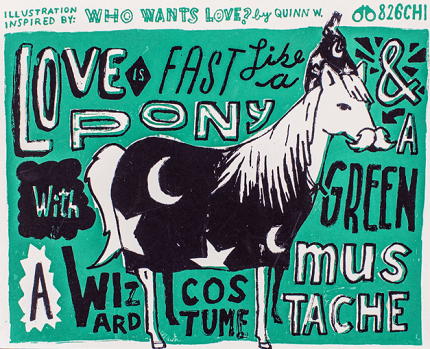 ILLUSTRATION
INSPIRED BY: WHO WANTS LOVE? by QUINN W. 826CHI
LOVE IS FAST Like a
PONY & A
With GREEN
A WIZARD COSTUME
mus
TACHE